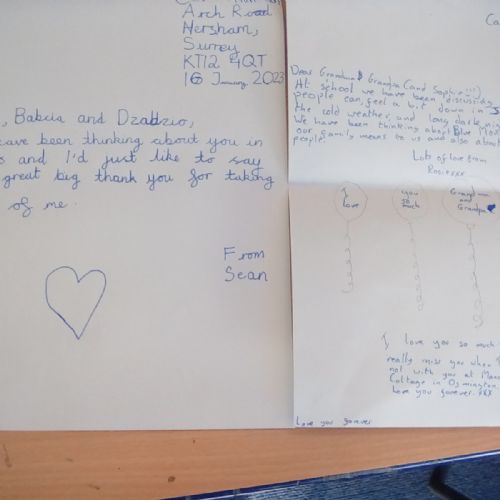 Arch Road
Hersham,
Surrey
KT12 4QT
16 January 2023
, Babcia and Dzadzio,
have been thinking about you in
s and I'd just like to say
great big thank you for taking
of me.
From
Sean
Ca
Dear Grandma & Grandpa (and Sophie!!!)
At school we have been discussing
people can feel a bit down in J
the cold weather and long dark
We have been thinking about Blue M
our family means to us and also about
people
Lots of love from
Rosie xxx
I
love
you
so
much
Grandma
and
Grandpa
I, love you so much
really miss you when
not with you at
Cottage in Osmington
Love you forever xxx
Love you forever